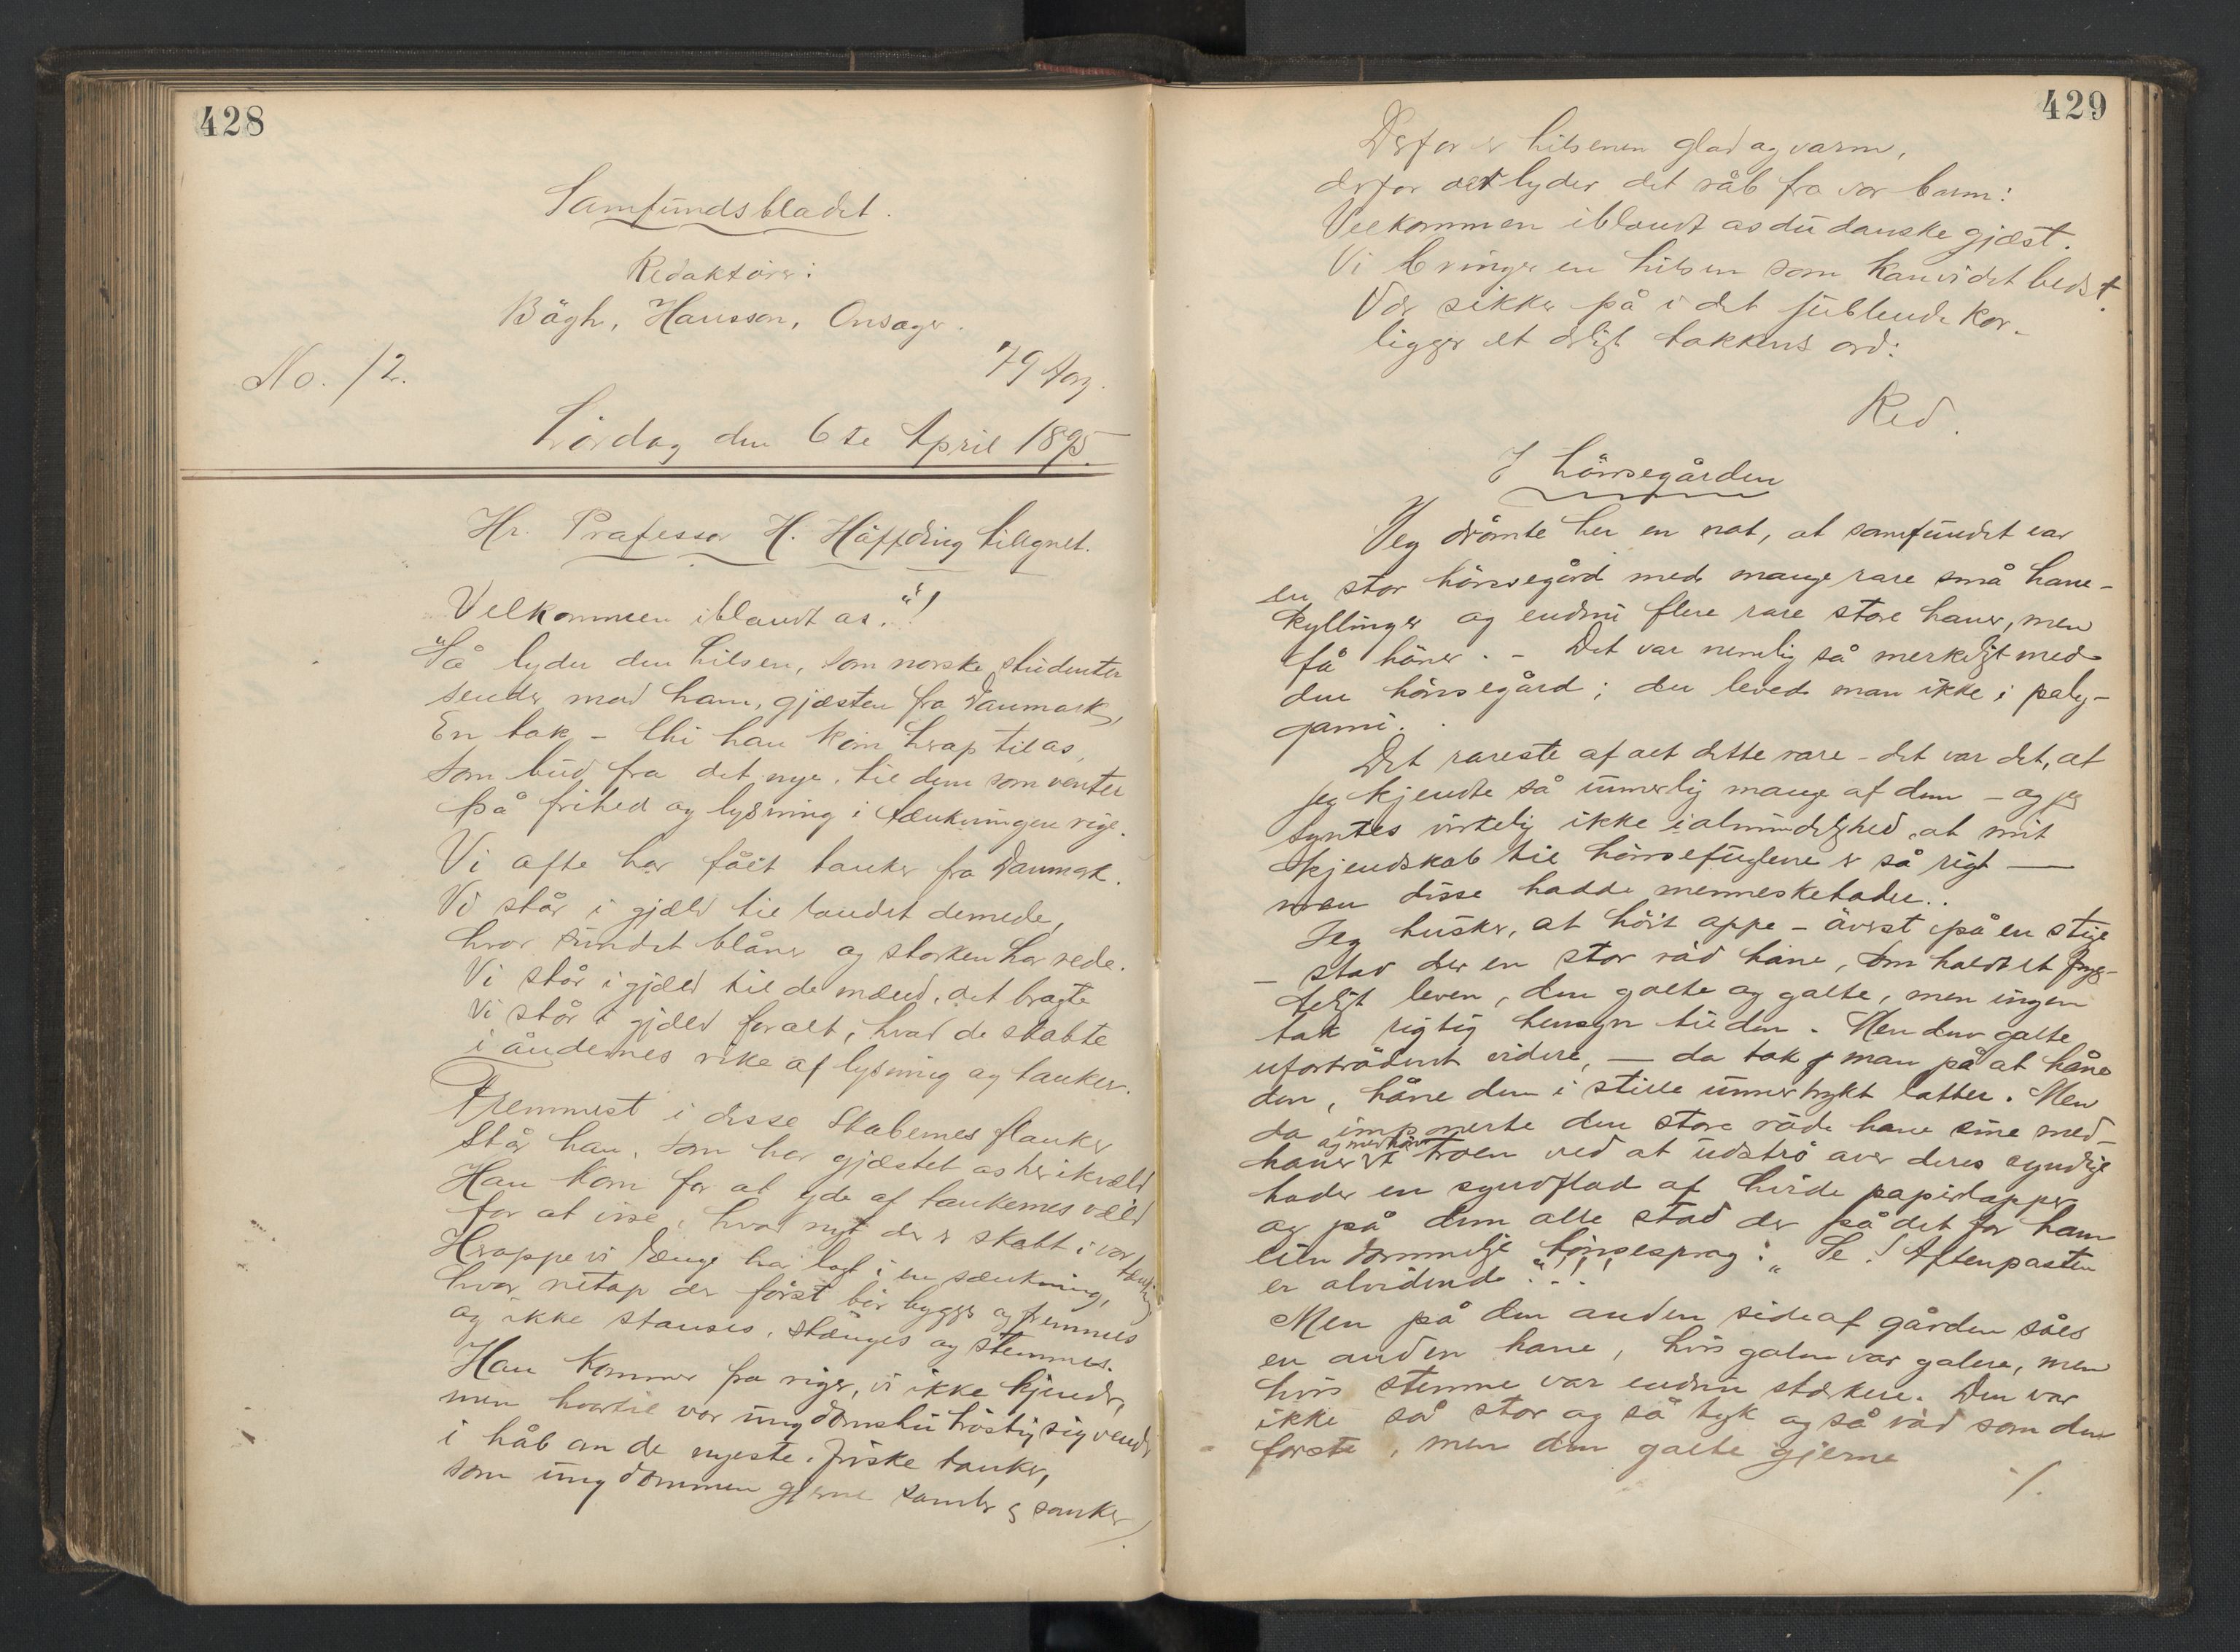 428
Samfundsbladet.
Redaktører:
Bøgh, Hansson, Onsager.
No. 12.
79 Aarg.
Lørdag den 6te April 1895.
Hr. Professor H. Høffding tilegnet.
Velkommen iblandt os."!
"Så lyder den hilsen, som norske studenter
sender mod ham, gjæsten fra Danmark,
En tak – thi han kom herop til os,
som bud fra det nye, til dem som venter
på frihed og lysning i tænkningens rige.
Vi ofte har fåët tanker fra Danmark.
Vi står i gjæld til landet dernede,
hvor sundet blåner og storken har rede.
Vi står i gjæld til de mænd, det bragte
Vi står i gjæld for alt, hvad de skabte
i åndernes rike af lysning og tanker.
Fremmest i disse skabernes flanker
Står han, som har gjæstet os her ikvæld
Han kom for at yde af tankernes væld
for at vise, hvad nyt der er skabt i vor tænkning
Heroppe vi længe har lagt i en sænkning,
hvor netop der først bør bygges og fremmes
og ikke stanses, stænges og stemmes.
Han kommer fra riger, vi ikke kjender,
men hvortil vor ungdomshu trøstig sig vender
i håb om de nyeste, friske tanker,
som ungdommen gjerne samler og sanker
429
Derfor er hilsenen glad og varm,
derfor lyder det råb fra vor barm:
Velkommen iblandt os du danske gjæst.
Vi bringer en hilsen som kan vi det bedst.
Vær sikker på i det jublende kor
ligger et ærligt takkens ord:
Red.
I hønsegården
Jeg drømte her en nat, at samfundet var
en stor hønsegård med mange rare små hane-
kyllinger og endnu flere rare store haner, men
få høner. – Det var nemlig så merkeligt med
den hønsegård; der leved man ikke i poly-
gami.
Det rareste af alt dette rare – det var det, at
jeg kjendte så umerlig mange af dem – og jeg
syntes virkelig ikke i almindelighed, at mit
kjendskab til hønsefuglene er så rigt —
men disse hadde menneskehoder..
Jeg husker, at høit oppe – øverst på en stige
– stod der en stor rød hane, som holdt et fryg-
teligt leven, den golte og golte, men ingen
tok rigtig hensyn til den. Men den golte
ufortrødent videre, — da tok man på at håne
den, håne den i stille undertrykt latter. Men
da imponerte den store røde hane sine med-
haner og medhøner troen ved at udstrø over deres syndige
hoder en syndflod af hvide papirlapper
og på dem alle stod der på det for ham
eiendommelige hønsesprog: „Se! Aftenposten
er alvidende"!!!
Men på den anden side af gården såes
en anden hane, hvis galen var galere, men
hvis stemme var endnu sterkere. Den var
ikke så stor og så tyk og så rød som den
første, men den golte gjerne
./.